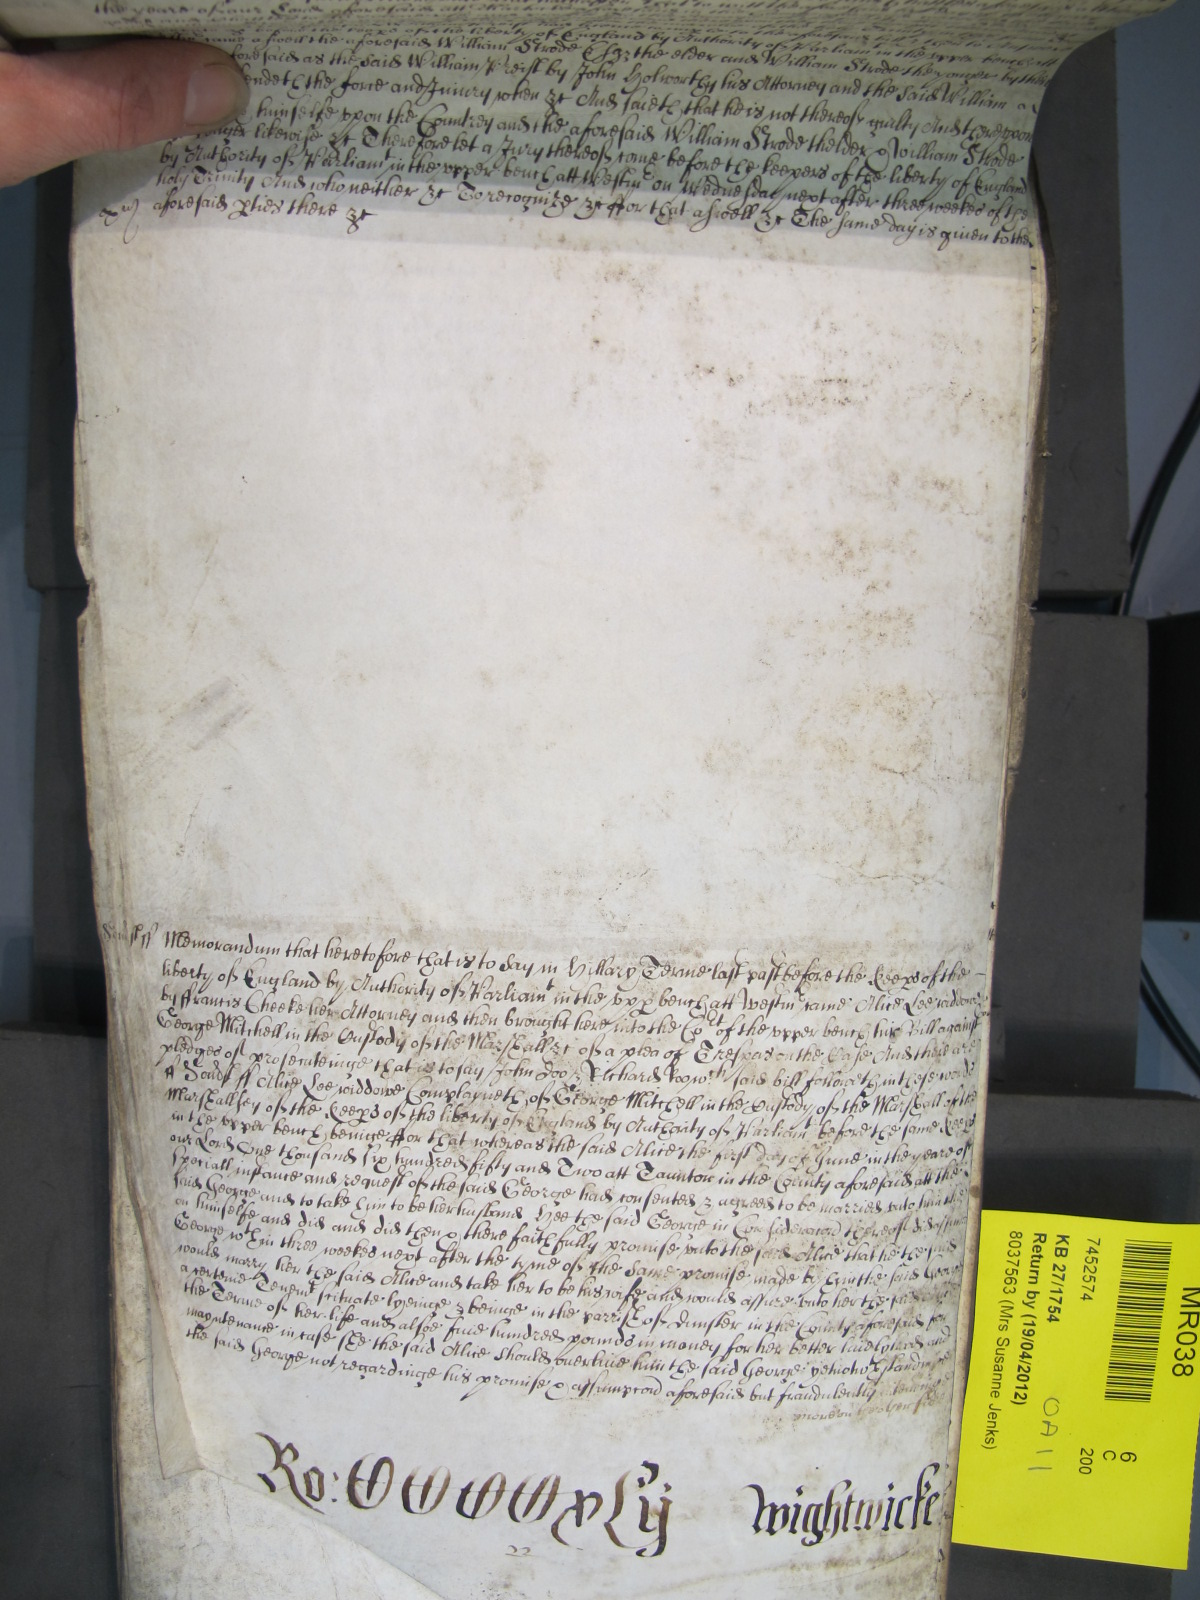 the years of our Lord aforesaid
of the liberty of England by Authority of Parliam
aforesaid William Strode Esqr the elder and William Strode the younger by
foresaid as the said William Preist by John Holworthy his Attorney and the said William
endeth the force and Iniury when &c And saieth that he is not thereof guilty And thereupon
himselfe vpon the Countrey and the aforesaid William Strode thelder & William Strode
likewise &c Therefore let a Jury thereof come before the keepers of the liberty of England
by Authority of Parliamt in the vpper bench att Westmr on Wednesday next after three weekes of the
holy Trinity And who neither &c To recognize &c ffor that aswell &c The same day is given to the
aforesaid pties there &c
Memorandum that heretofore that is to say in Hillary Terme last past before the Keeps of the
liberty of England by Authority of Parliamt in the vpp bench att Westmr came Alice Lee widdowe
by ffrancis Cheeke her Attorney and then brought here into the Cort of the vpper bench his Bill against
George Mitchell in the Custody of the Marshall &c of a plea of Trespas on the Case And there are
pledges of prosecuteinge that is to say John Doo & Richard Roo wch said bill followeth in these words
ss Alice Lee widdowe Complayneth of George Mitchell in the Custody of the Marshall of the
Marshallsey of the Keeps of the liberty of England by Authority of Parliamt before the same Keeps
in the vpper bench beinge ffor that whereas the said Alice the first day of June in the yeare of
our Lord One thousand six hundred fifty and Two att Taunton in the County aforesaid att the
speciall instance and request of the said George had consented & agreed to be married vnto him the
said George and to take him to be her husband Hee the said George in Consideracon thereof did assume
on himselfe and did and did then & there faithfully promise vnto the said Alice that he the said
George wthin three weekes next after the tyme of the same promise made by him the said George
would marry her the said Alice and take her to be his wife and would assure vnto her the said
a certeine Tenemt scituate lyeinge & beinge in the parrish of Ilminster in the County aforesaid for
the Terme of her life and alsoe five hundred pounds in money for her better livelyhood and
mayntenance in case shee the said Alice should overlive him the said George yet
the said George not regardinge his promise & assumpcon aforesaid but fraudulently
Ro: CCCCxlij Wightwicke
22
MR038
6
C
200
7452574
KB 27/1754
Return by (19/04/2012)
8037563 (Mrs Susanne Jenks)
OA 11